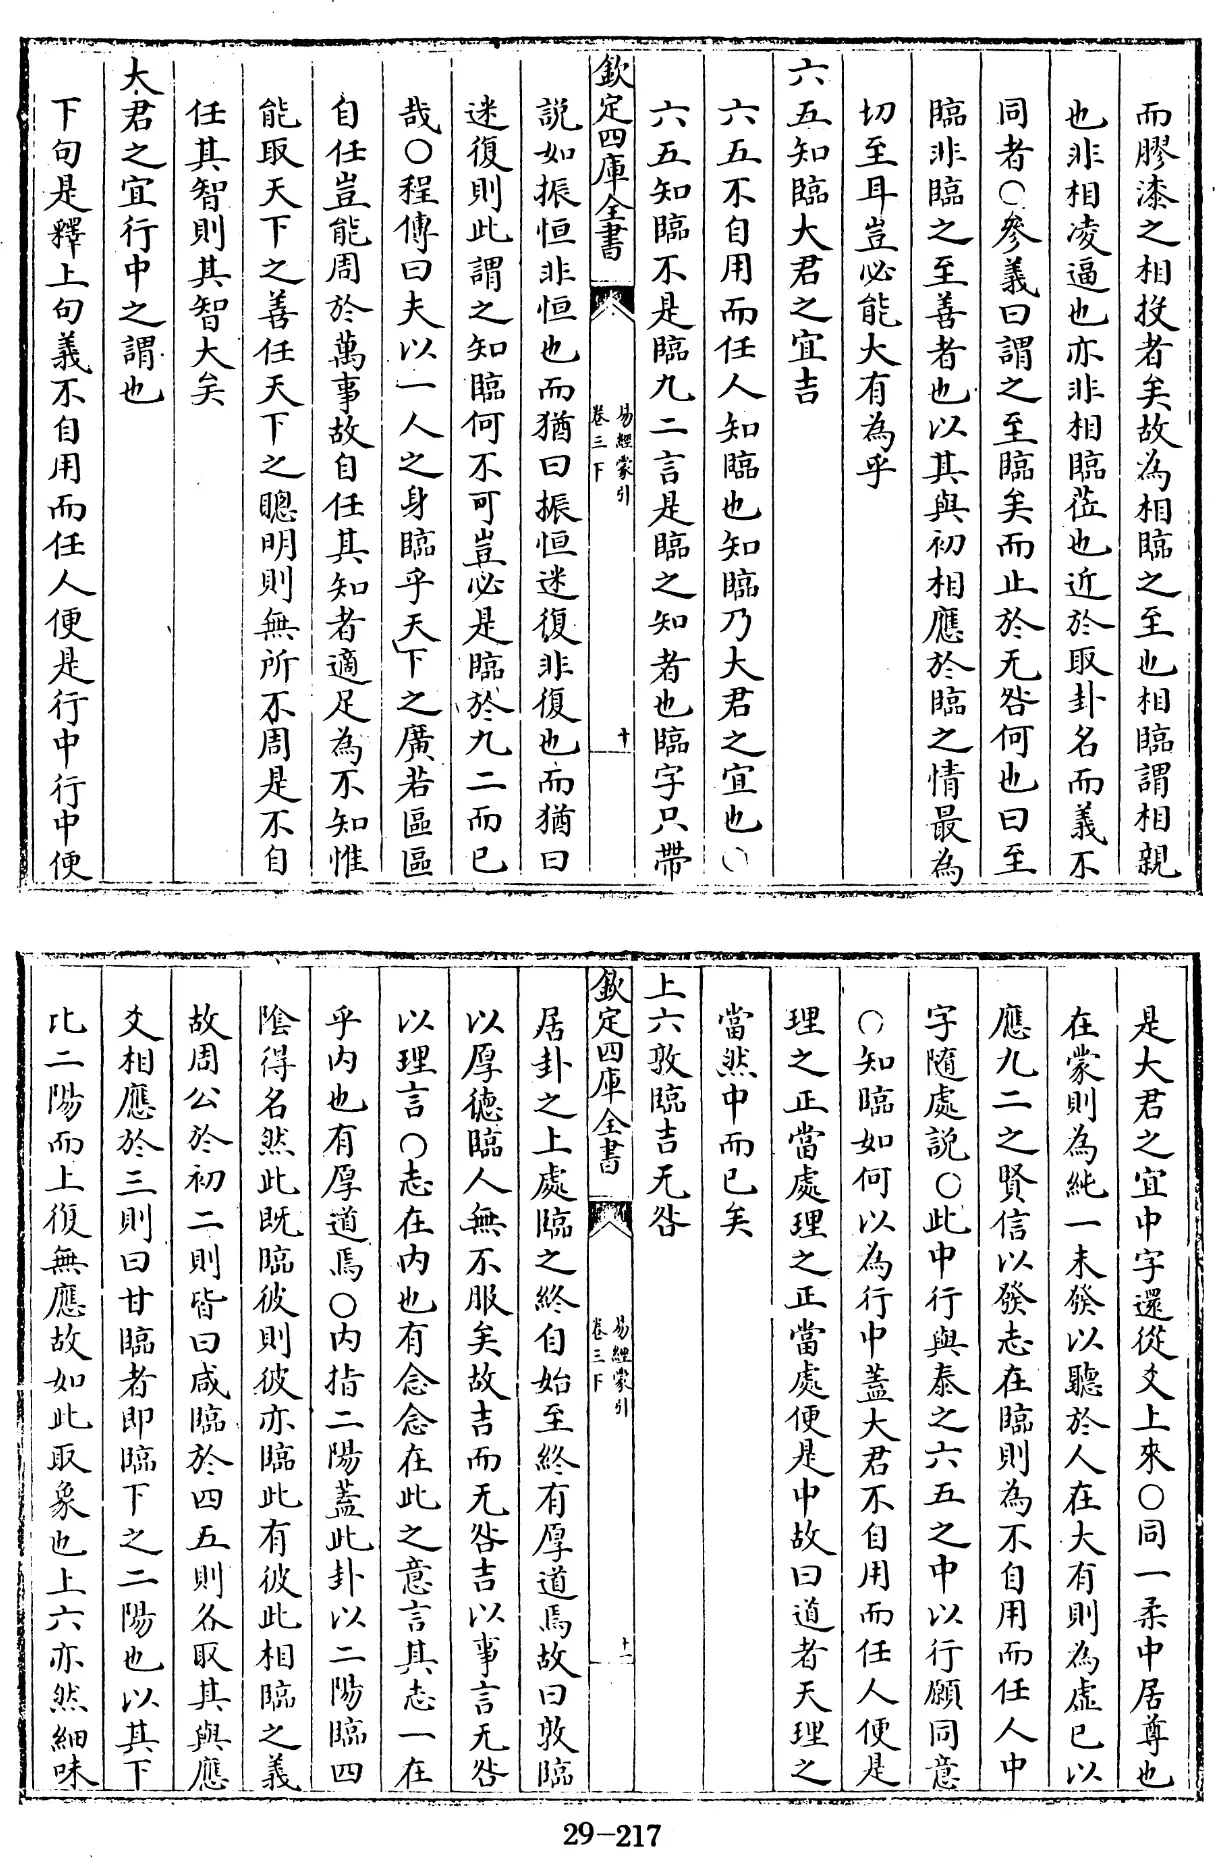 而膠漆之相投者矣故為相臨之至也相臨謂相親
也非相凌逼也亦非相臨莅也近於取卦名而義不
同者○參義曰謂之至臨矣而止於无咎何也曰至
臨非臨之至善者也以其與初相應於臨之情最為
切至耳豈必能大有為乎
六五知臨大君之宜吉
六五不自用而任人知臨也知臨乃大君之宜也○
六五知臨不是臨九二言是臨之知者也臨字只帶
欽定四庫全書
易經蒙引
卷三下
十
説如振恒非恒也而猶曰振恒迷復非復也而猶曰
迷復則此謂之知臨何不可豈必是臨於九二而已
哉○程傳曰夫以一人之身臨乎天下之廣若區區
自任豈能周於萬事故自任其知者適足為不知惟
能取天下之善任天下之聰明則無所不周是不自
任其智則其智大矣
大君之宜行中之謂也
下句是釋上句義不自用而任人便是行中行中便
是大君之宜中字還從爻上來○同一柔中居尊也
在蒙則為純一未發以聽於人在大有則為虛已以
應九二之賢信以發志在臨則為不自用而任人中
字隨處説○此中行與泰之六五之中以行願同意
○知臨如何以為行中蓋大君不自用而任人便是
理之正當處理之正當處便是中故曰道者天理之
當然中而已矣
上六敦臨吉无咎
欽定四庫全書
易經蒙引
卷三下
十一
居卦之上處臨之終自始至終有厚道焉故曰敦臨
以厚德臨人無不服矣故吉而无咎吉以事言无咎
以理言○志在内也有念念在此之意言其志一在
乎内也有厚道焉○内指二陽蓋此卦以二陽臨四
陰得名然此既臨彼則彼亦臨此有彼此相臨之義
故周公於初二則皆曰咸臨於四五則各取其與應
爻相應於三則曰甘臨者即臨下之二陽也以其下
比二陽而上復無應故如此取象也上六亦然細味
29-217